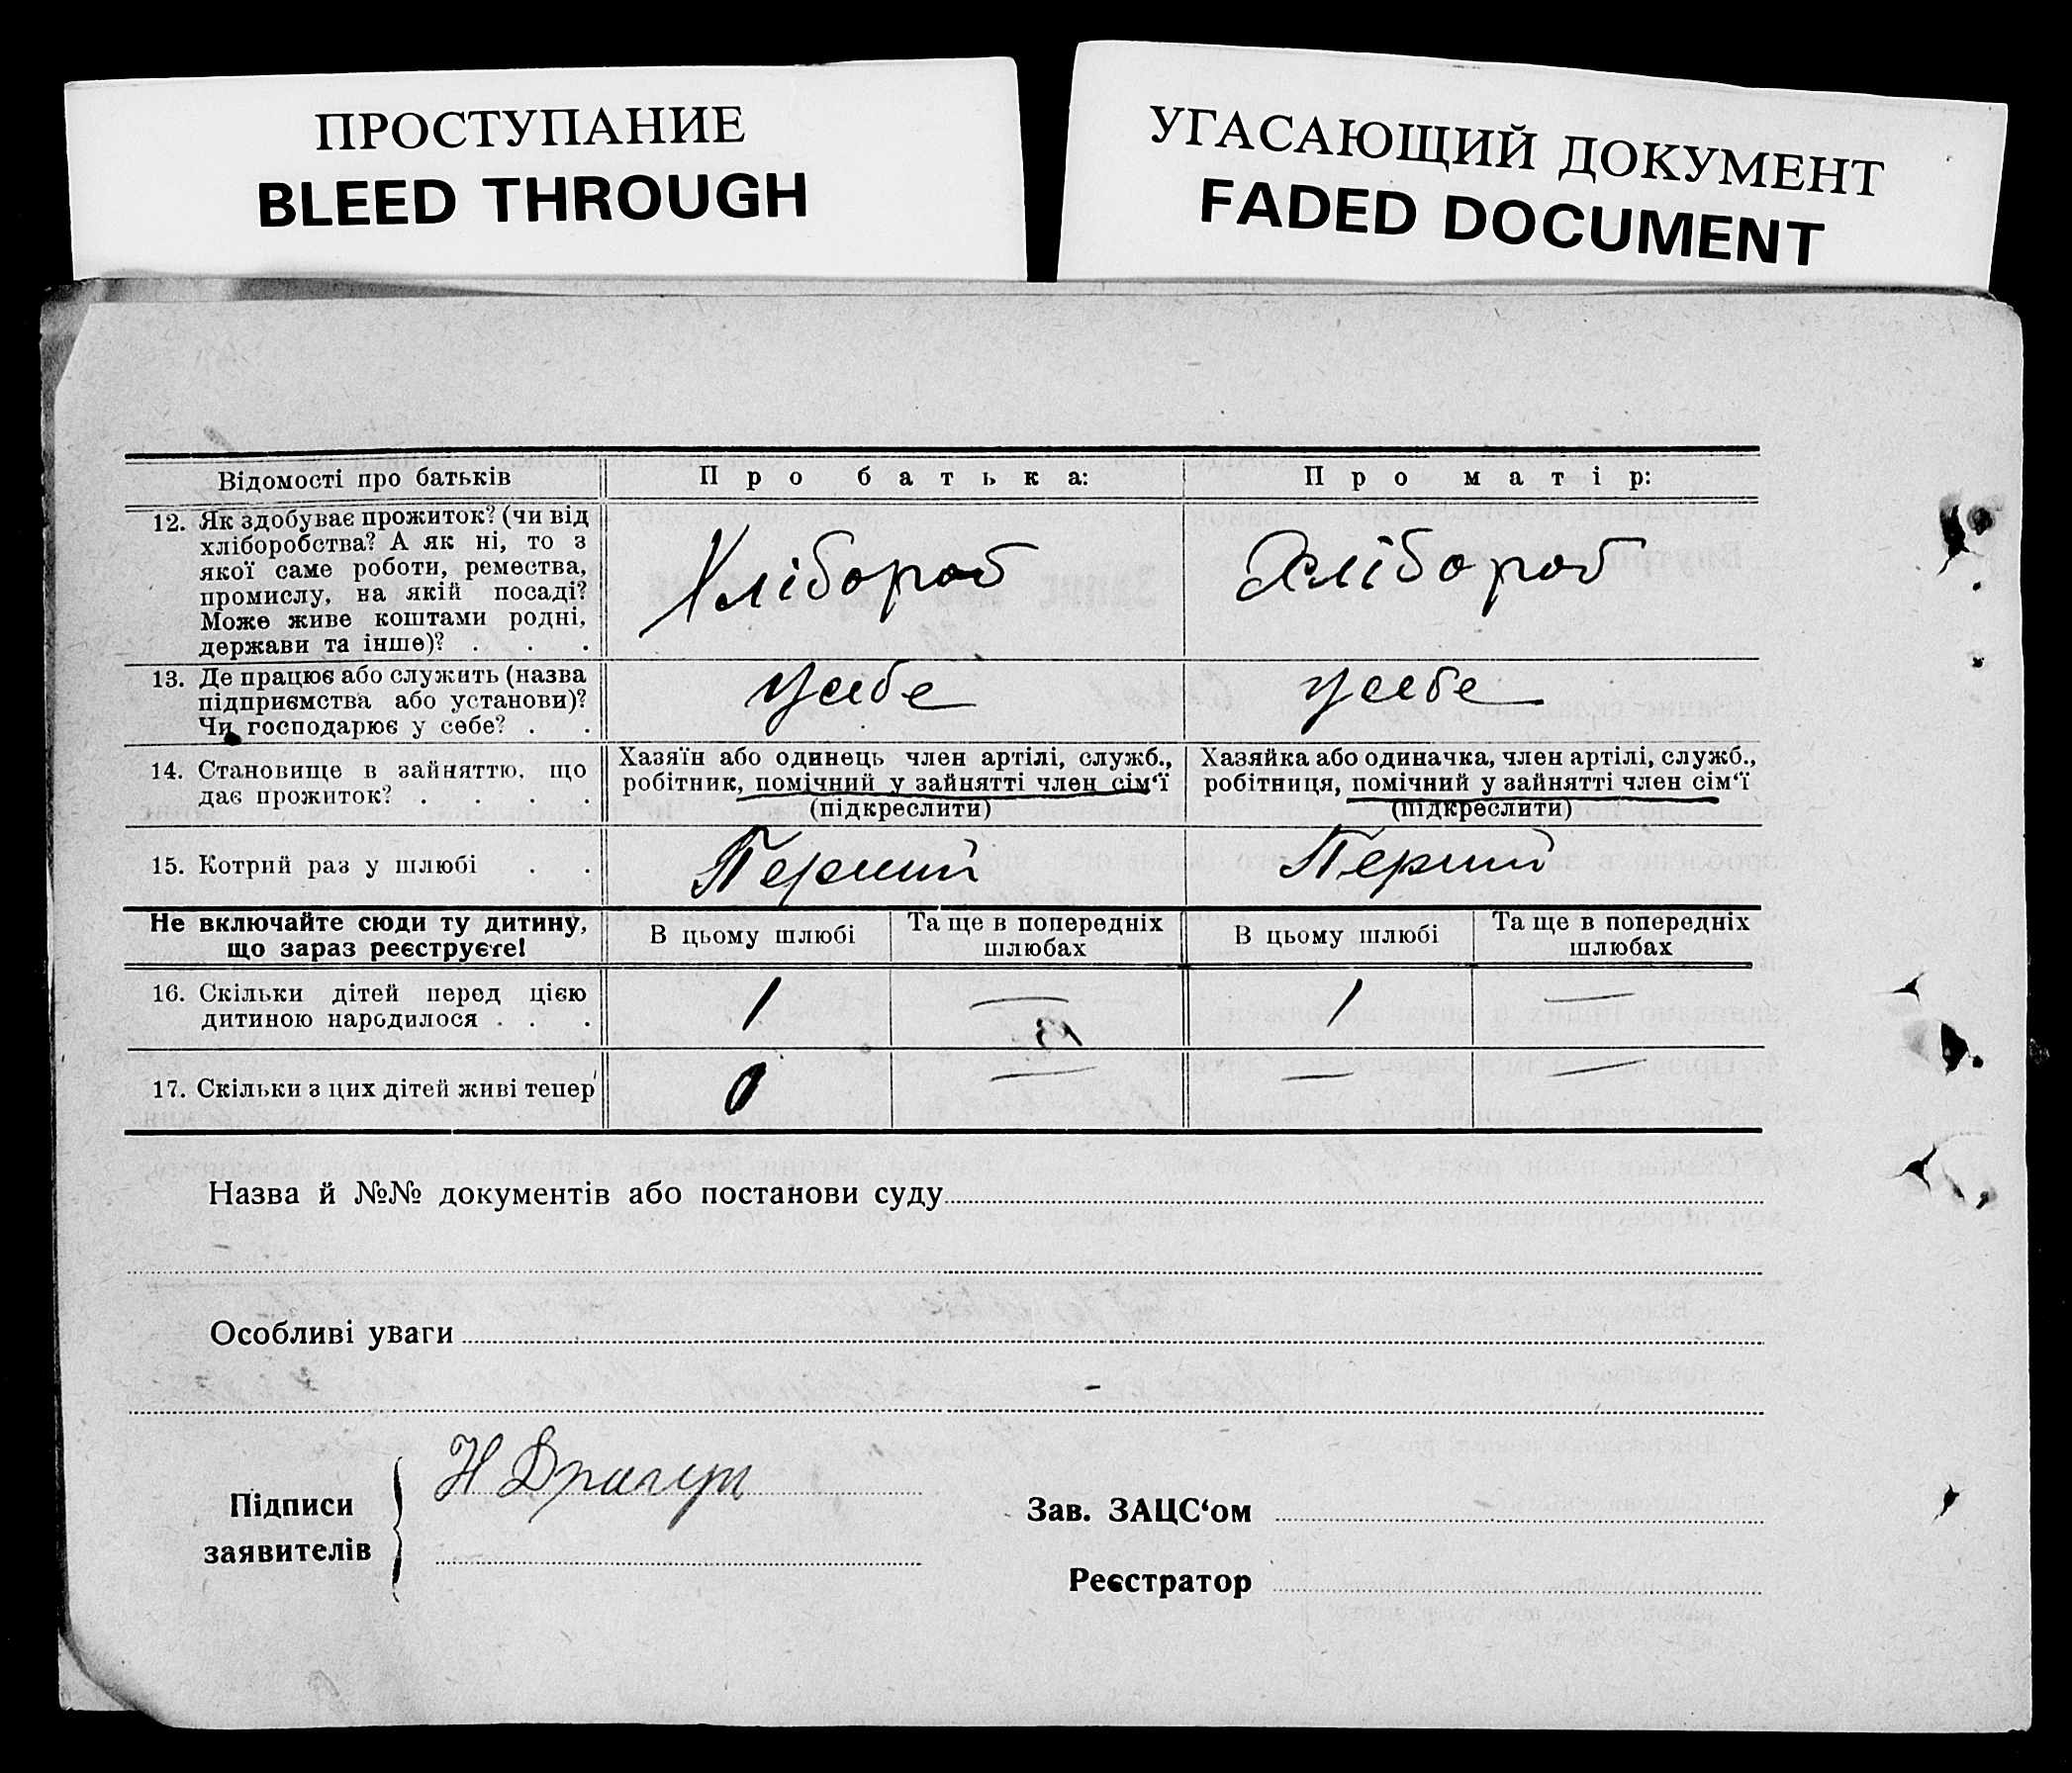 ПРОСТУПАНИЕ
BLEED THROUGH
УГАСАЮЩИЙ ДОКУМЕНТ
FADED DOCUMENT
Відомості про батьків
Про батька:
Про матір:
12. Як здобуває прожиток? (чи від
хліборобства? А як ні, то з
якої саме роботи, ремества,
промислу, на якій посаді?
Може живе коштами родні,
держави та інше)? . . .
Хлібороб
Хлібороб
13. Де працює або служить (назва
підприємства або установи)?
Чи господарює у себе? . .
у себе
у себе
14. Становище в зайняттю, що
дає прожиток? . . . .
Хазяїн або одинець член артілі, служб.,
робітник, помічний у зайнятті член сім‘ї
(підкреслити)
Хазяйка або одиначка, член артілі, служб.,
робітниця, помічний у зайнятті член сім‘ї
(підкреслити)
15. Котрий раз у шлюбі . .
Перший
Перший
Не включайте сюди ту дитину,
що зараз реєструєте!
В цьому шлюбі
Та ще в попередніх
шлюбах
В цьому шлюбі
Та ще в попередніх
шлюбах
16. Скільки дітей перед цією
дитиною народилося . . .
1
—
1
—
17. Скільки з цих дітей живі тепер
0
—
—
—
Назва й №№ документів або постанови суду
Особливі уваги
Підписи
заявителів
Н Драгун
Зав. ЗАЦС‘ом
Реєстратор